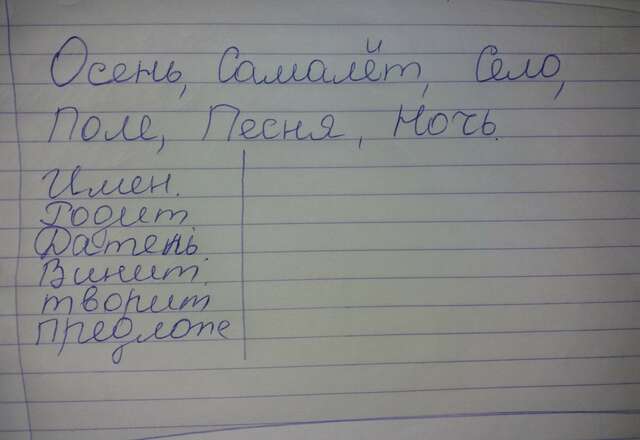 Осень, Самалёт, Село,
Поле, Песня, Ночь.
Имен.
Родит
Датель.
Винит.
творит
предложе